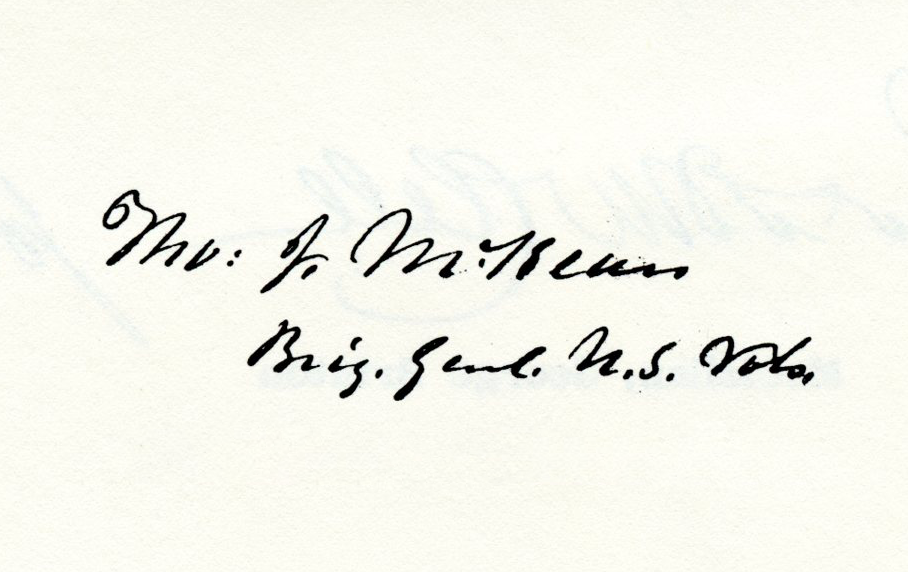 Tho: J. McKean
Brig. Genl. U.S. Vols.